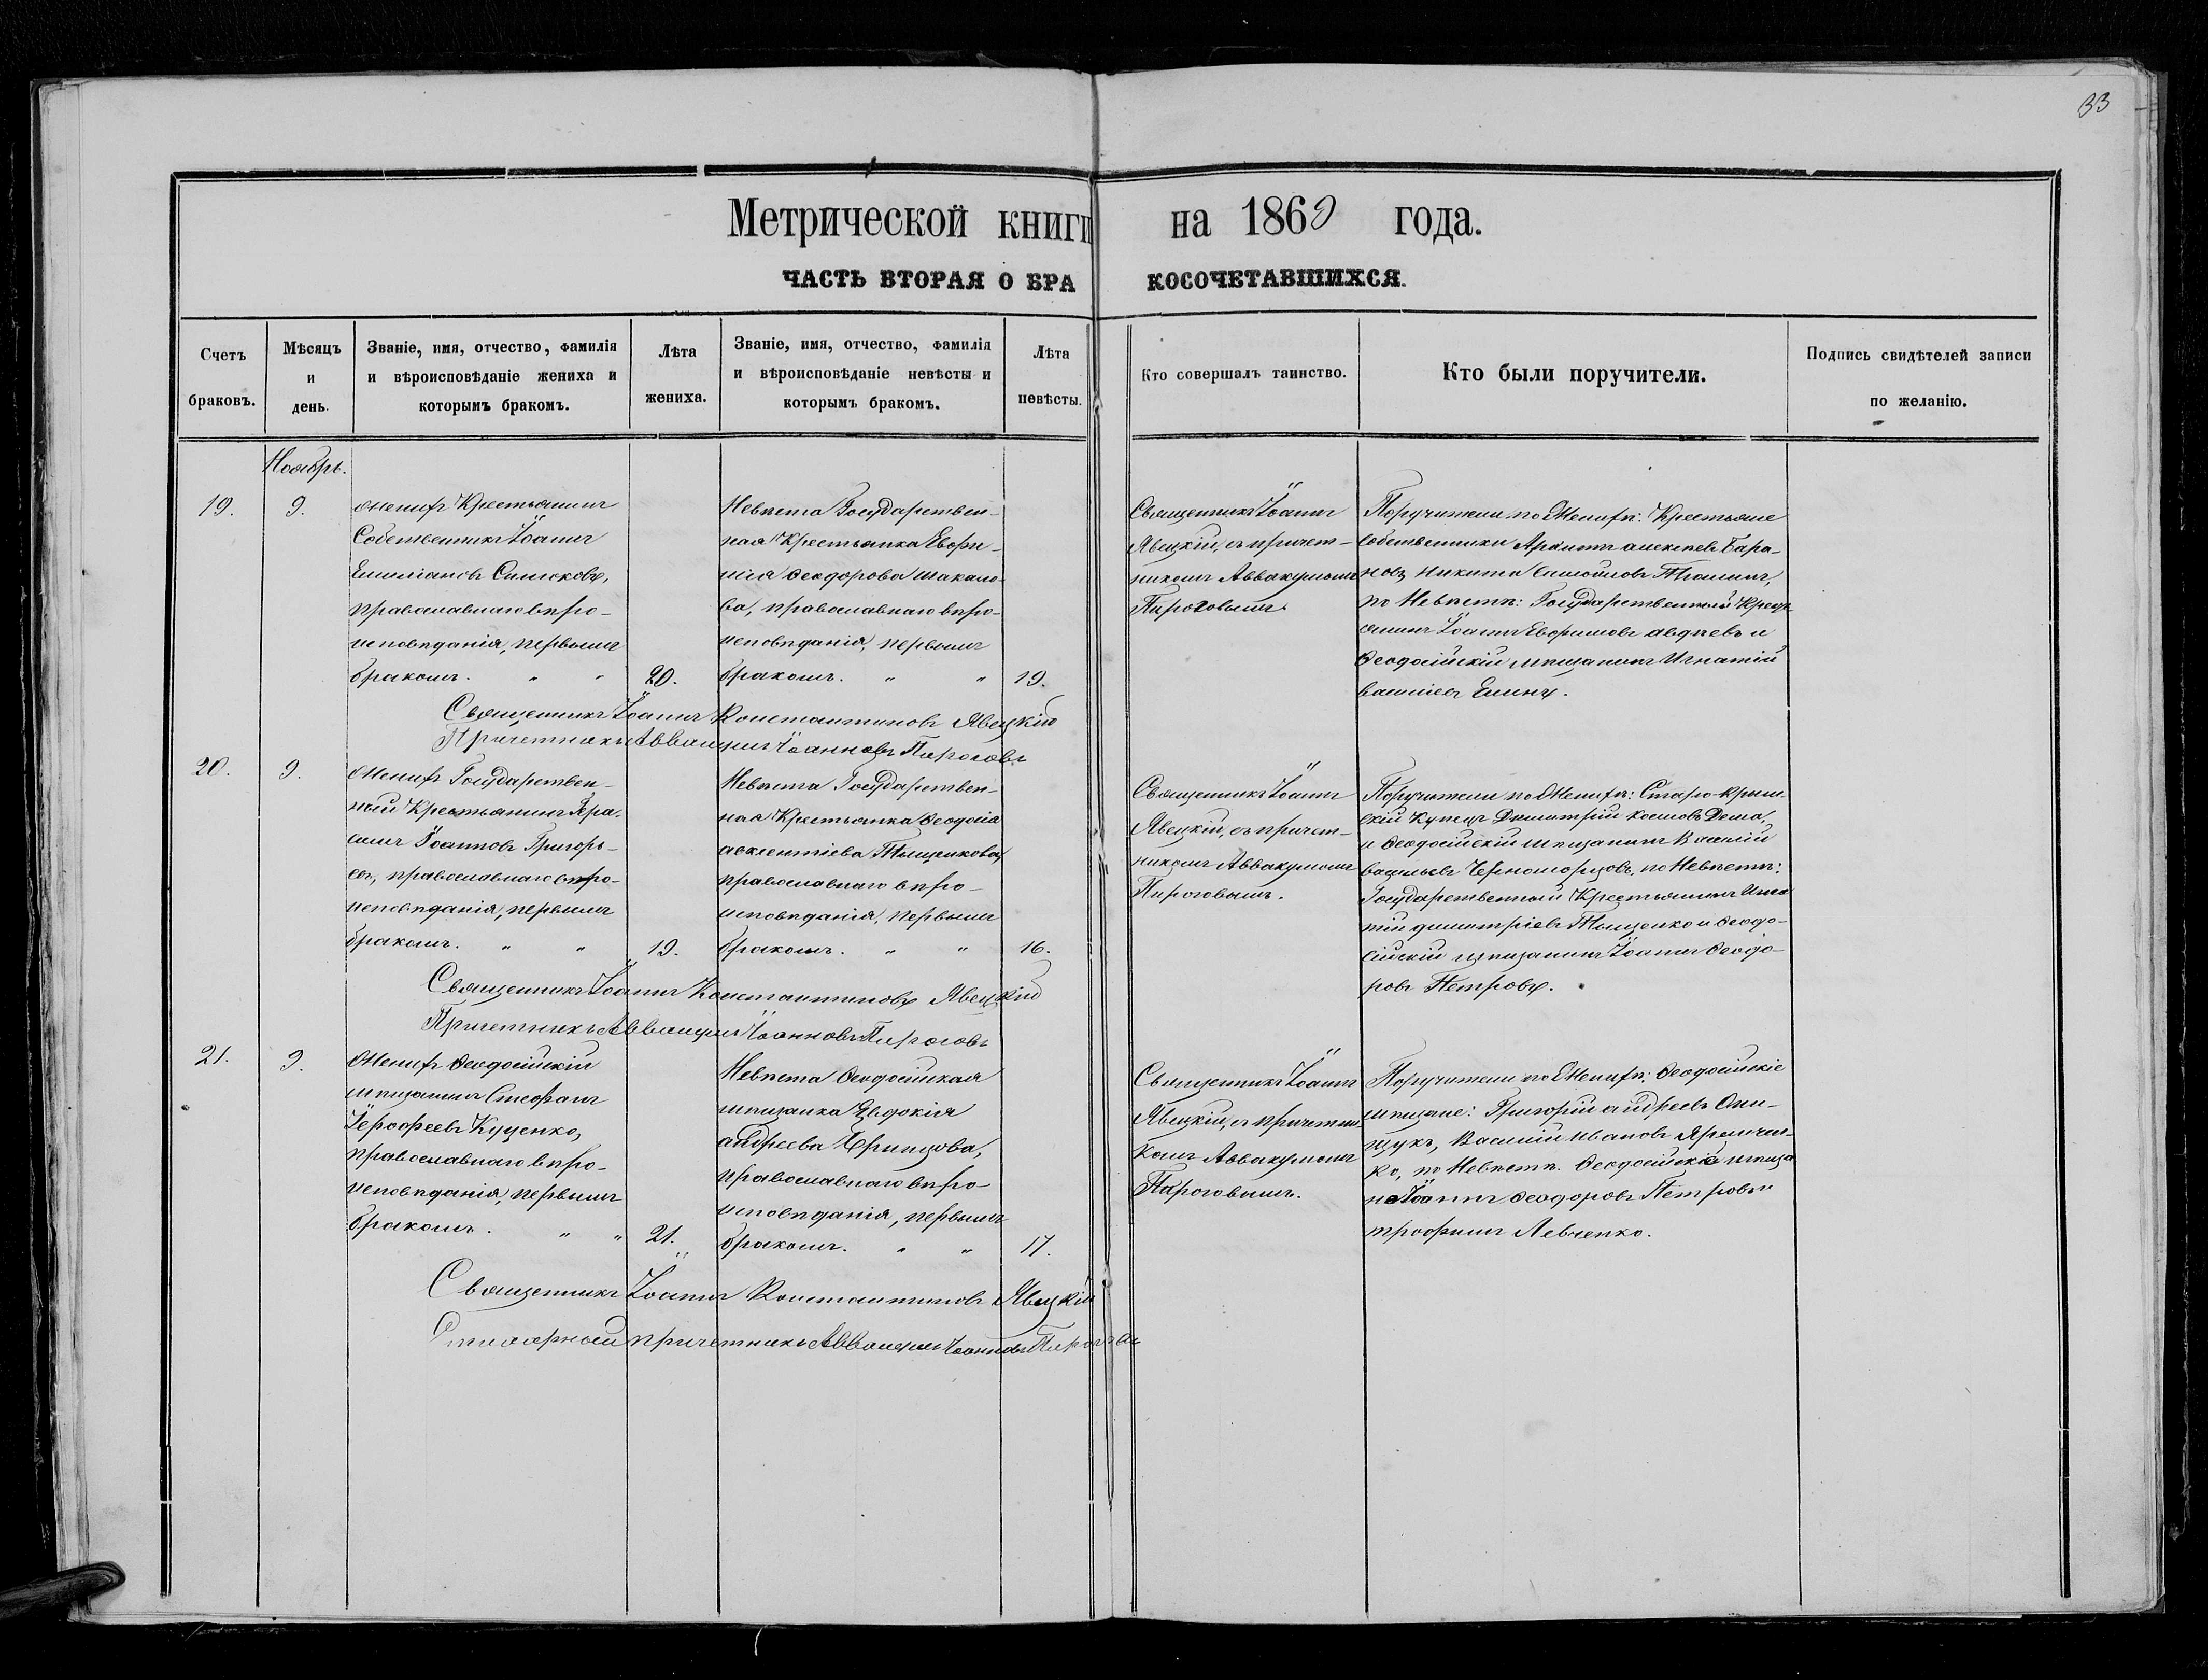 33
Метрической книги на 1869 года.
ЧАСТЬ ВТОРАЯ О БРАКОСОЧЕТАВШИХСЯ.
Счетъ браковъ.
Мѣсяцъ и день.
Званіе, имя, отчество, фамилія
и вѣроисповѣданіе жениха и
которымъ бракомъ.
Лѣта жениха.
Званіе, имя, отчество, фамилія
и вѣроисповѣданіе невѣсты и
которымъ бракомъ.
Лѣта невѣсты.
Кто совершалъ таинство.
Кто были поручители.
Подпись свидѣтелей записи
по желанію.
Ноябрь.
19.
9.
Женихъ Крестьянинъ
Собственникъ Іоаннъ
Емиліановъ
православнаго вѣро-
исповѣданія, первымъ
бракомъ. " "
20.
Невѣста Государствен-
ная Крестьянка Евфи-
мія Ѳеодорова Шакало-
ва, православнаго вѣро-
исповѣданія, первымъ
бракомъ. " "
19.
Священникъ Іоаннъ
Явецкій, съ причет-
никомъ Аввакумомъ
Пироговымъ.
Поручители по Женихѣ: Крестьяне
собственники Архипъ Алексѣевъ Бара-
новъ, Никита Самойловъ
по Невѣстѣ: Государственный Кресть-
янинъ Іоаннъ Евфимовъ Авдѣевъ и
Ѳеодосійскій мѣщанинъ Игнатій
Василіевъ Еминъ.
Священникъ Іоаннъ Константиновъ Явецкій
Причетникъ Аввакумъ Іоанновъ Пироговъ
20.
9.
Женихъ Государствен-
ный Крестьянинъ Гера-
симъ Іоанновъ Григорь-
евъ, православнаго вѣро-
исповѣданія, первымъ
бракомъ. " "
19.
Невѣста Государствен-
ная Крестьянка Ѳеодосія
Авксентіева Тыщенкова,
православнаго вѣро-
исповѣданія, первымъ
бракомъ. " "
16.
Священникъ Іоаннъ
Явецкій, съ причет-
никомъ Аввакумомъ
Пироговымъ.
Поручители по Женихѣ: Старо-Крым-
скій Купецъ Димитрій Космовъ
и Ѳеодосійскій мѣщанинъ Василій
Васильевъ Черноморцовъ, по Невѣстѣ:
Государственный Крестьянинъ Игна-
тій Димитріевъ Тыщенко и Ѳеодо-
сійскій мѣщанинъ Іоаннъ Ѳеодо-
ровъ Петровъ.
Священникъ Іоаннъ Константиновъ Явецкій
Причетникъ Аввакумъ Іоанновъ Пироговъ
21.
9.
Женихъ Ѳеодосійскій
мѣщанинъ Стефанъ
Іероѳеевъ Куценко,
православнаго вѣро-
исповѣданія, первымъ
бракомъ. " "
21.
Невѣста Ѳеодосійская
мѣщанка Евдокія
Андреева
православнаго вѣро-
исповѣданія, первымъ
бракомъ. " "
17.
Священникъ Іоаннъ
Явецкій, съ причетни-
комъ Аввакумомъ
Пироговымъ.
Поручители по Женихѣ: Ѳеодосійскіе
мѣщане: Григорій Андреевъ Они-
щукъ, Василій Ивановъ Яремчен-
ко, по Невѣстѣ. Ѳеодосійскіе мѣща-
не Іоаннъ Ѳеодоровъ Петровъ и
Трофимъ Левченко.
Священникъ Іоаннъ Константиновъ Явецкій
причетникъ Аввакумъ Іоанновъ Пироговъ